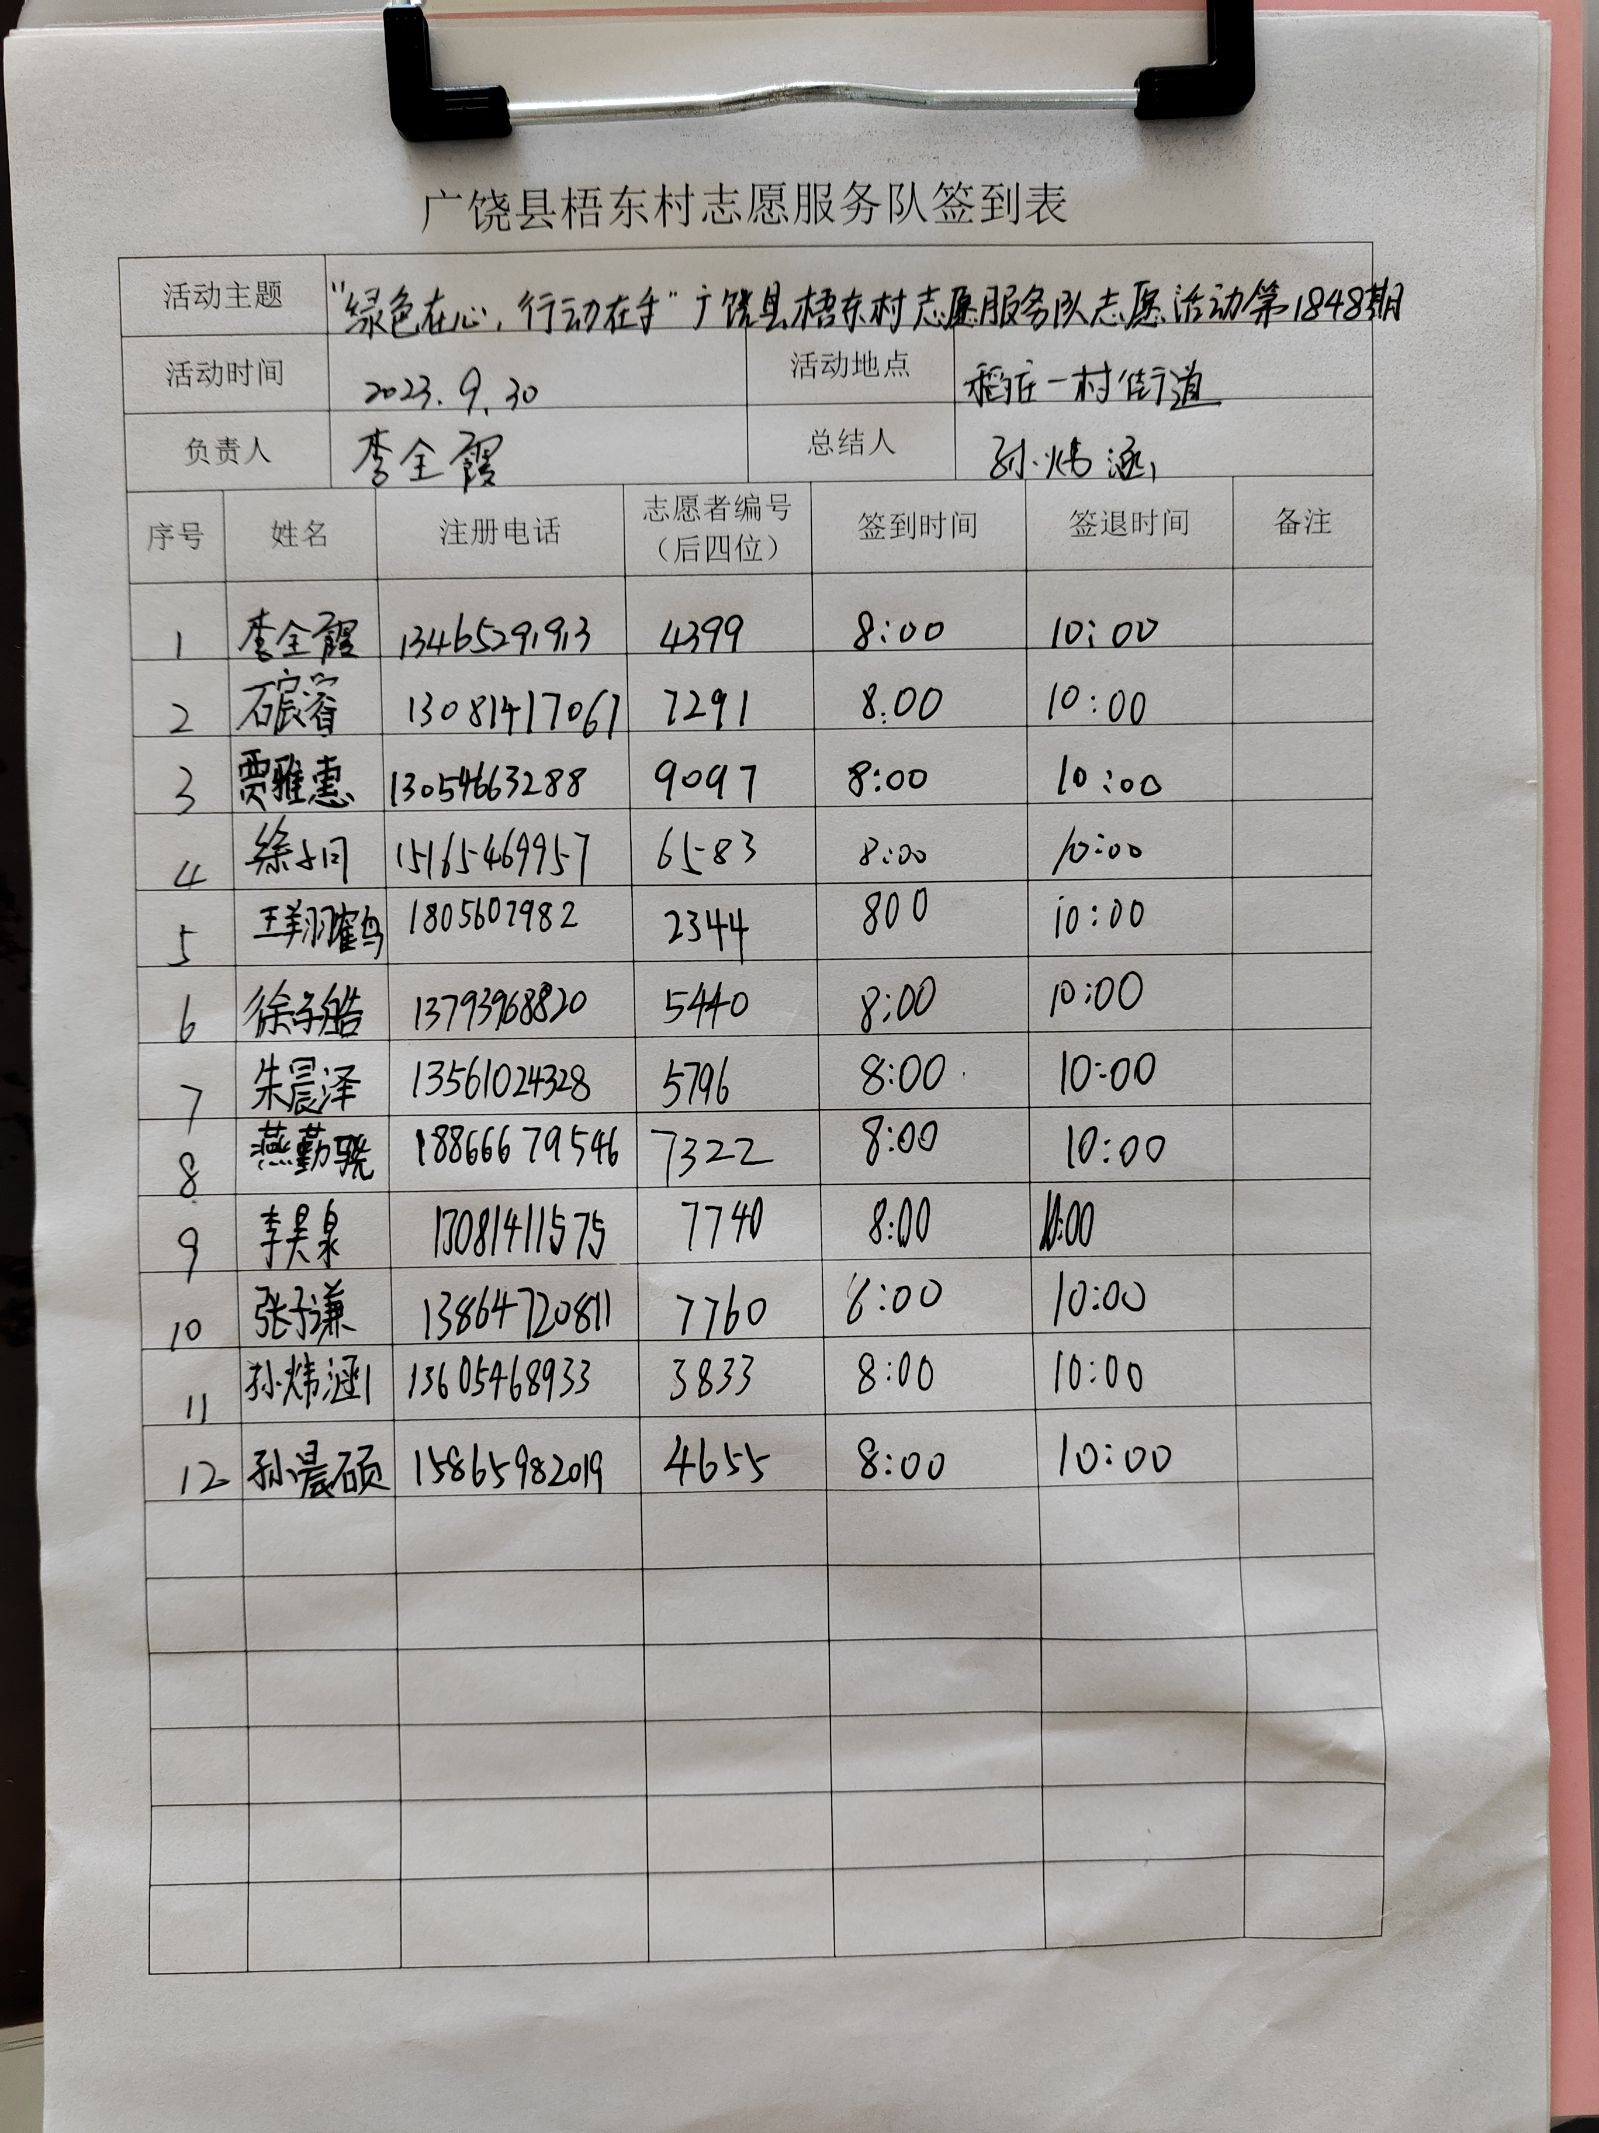 广饶县梧东村志愿服务队签到表
活动主题 “绿色在心，行动在手”广饶县梧东村志愿服务队志愿活动第1848期
活动时间 2023.9.30 活动地点 稻庄一村街道
负责人 李全霞 总结人 孙炜涵
序号 姓名 注册电话 志愿者编号（后四位） 签到时间 签退时间 备注
1 李全霞 13465291913 4399 8:00 10:00
2 石宸睿 13081417067 7291 8:00 10:00
3 贾雅惠 13054663288 9097 8:00 10:00
4 徐 15165469957 6583 8:00 10:00
5 王翔鹤 1805607982 2344 800 10:00
6 徐子皓 13793968820 5440 8:00 10:00
7 朱晨泽 13561024328 5796 8:00 10:00
8 燕勤骁 18866679546 7322 8:00 10:00
9 李昊泉 13081411575 7740 8:00 10:00
10 张子谦 13864720811 7760 8:00 10:00
11 孙炜涵 13605468933 3833 8:00 10:00
12 孙晨硕 15865982019 4655 8:00 10:00